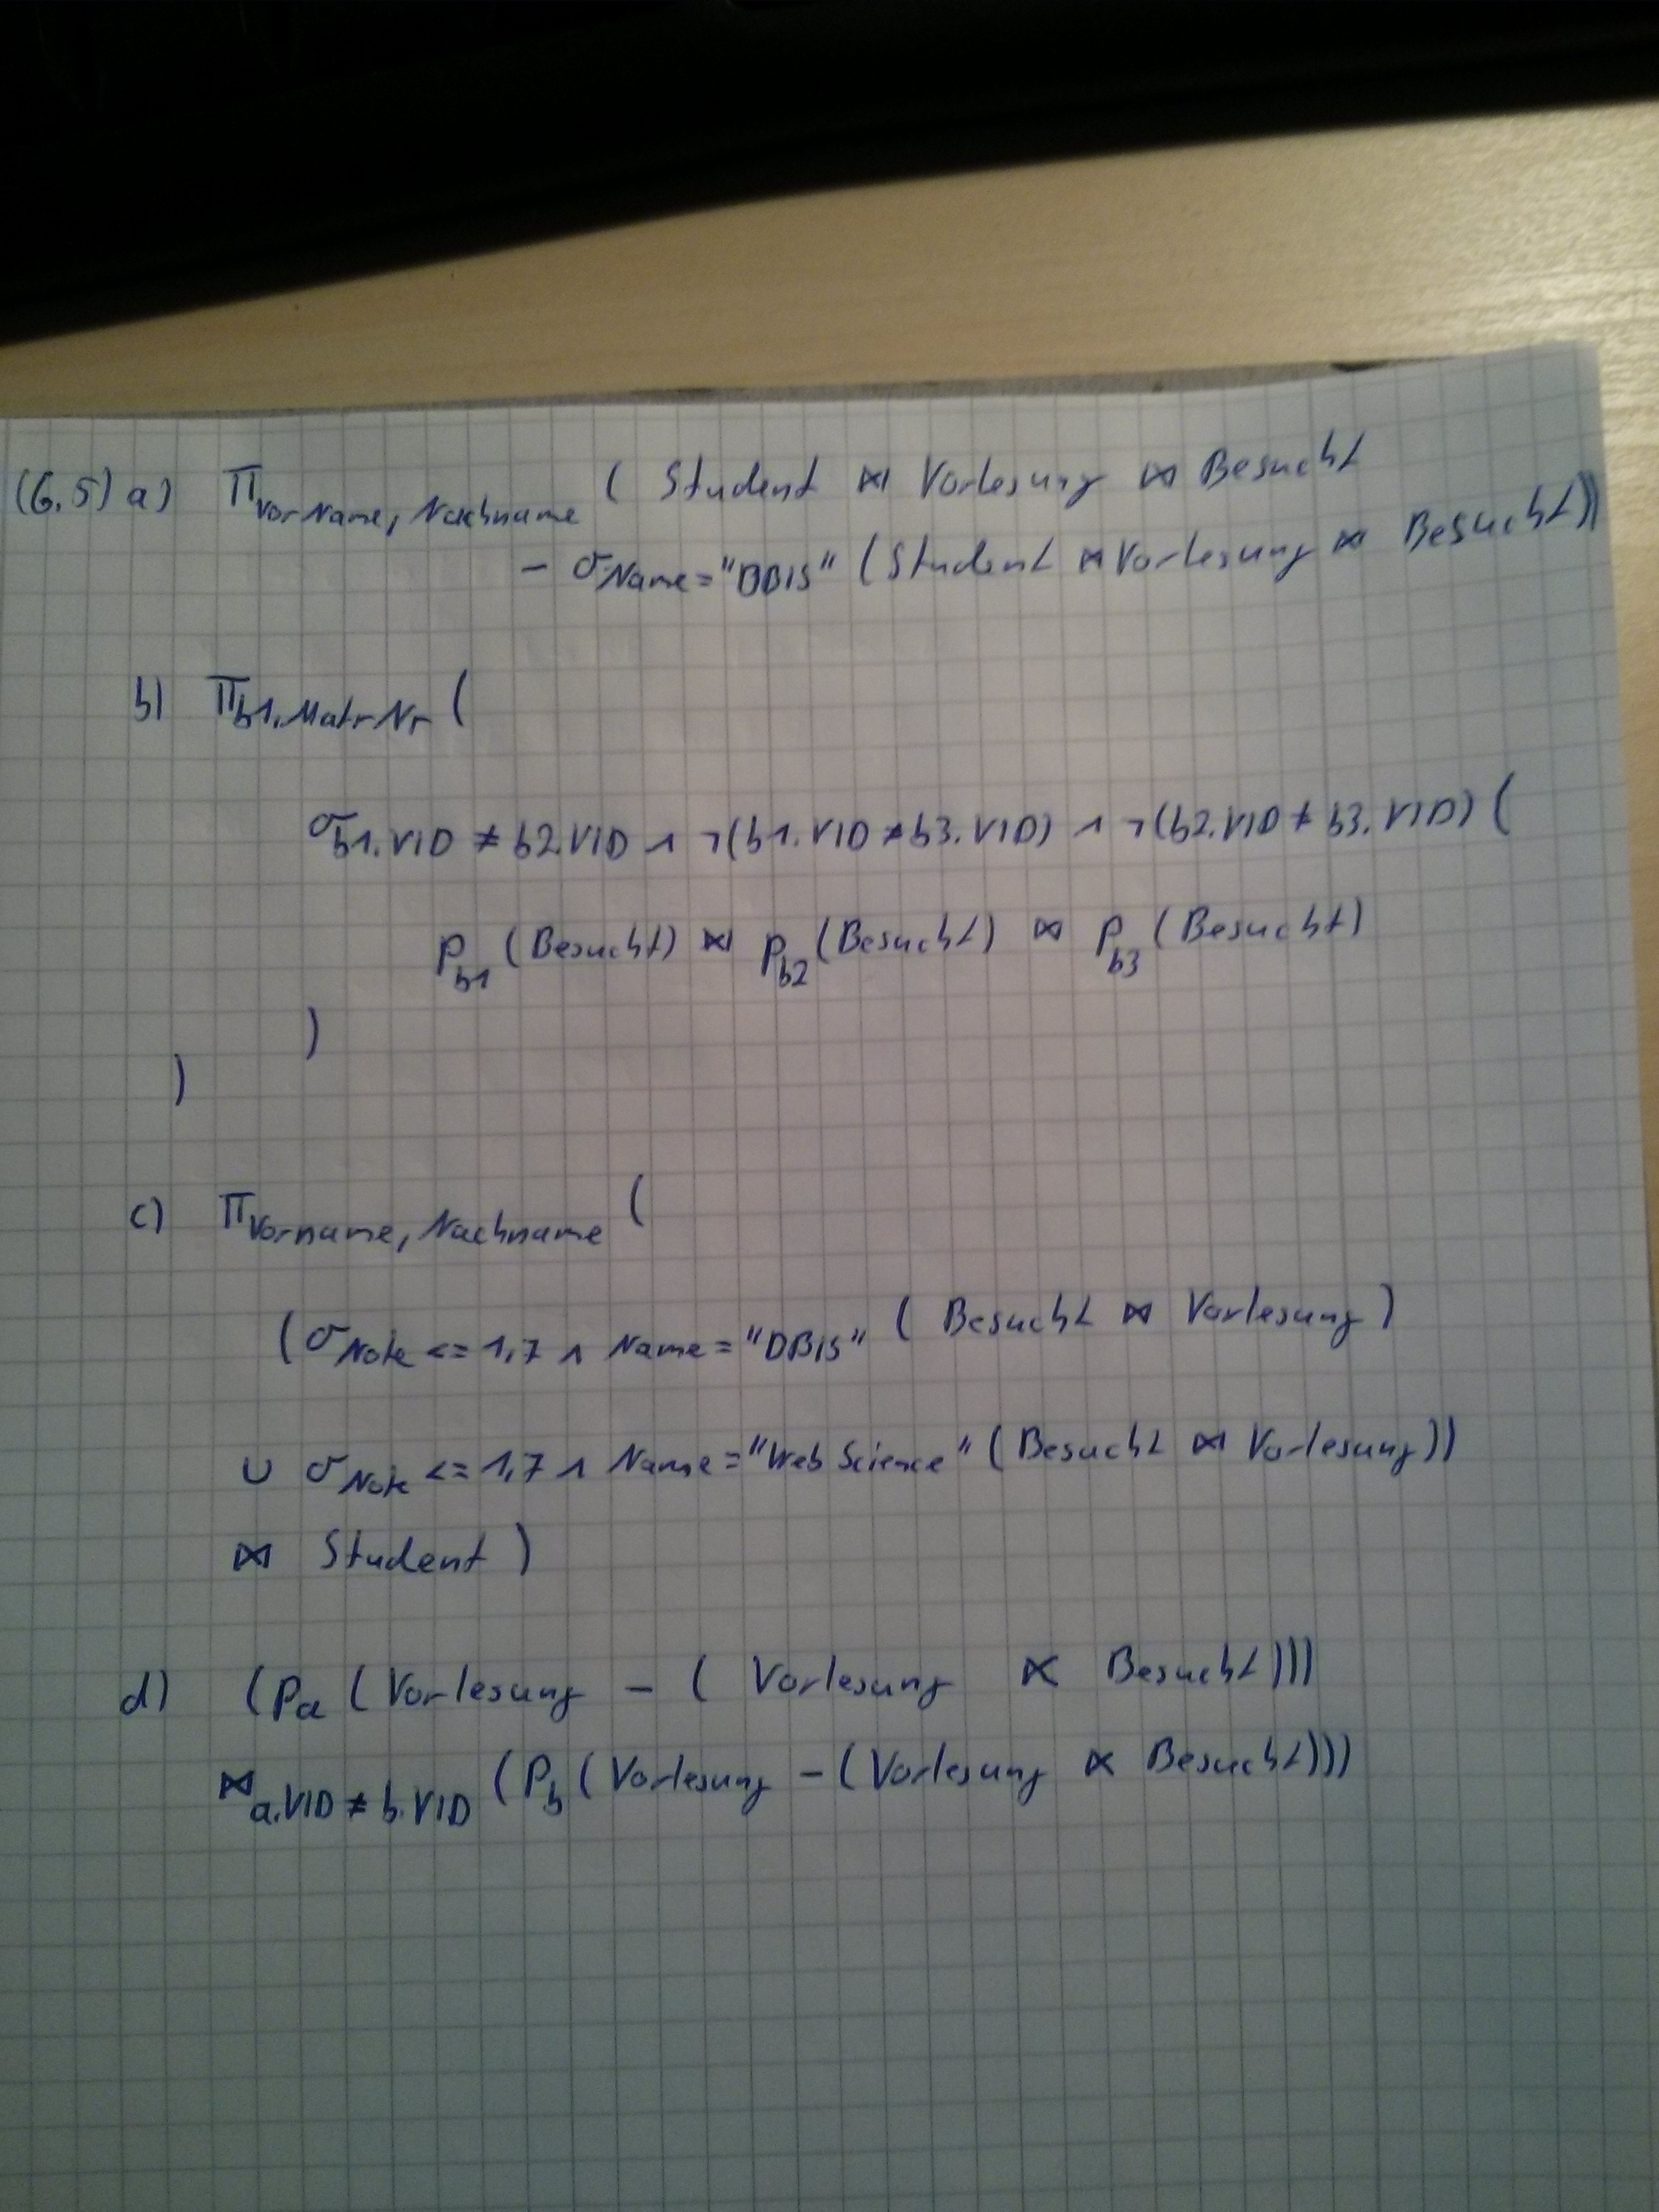 (6.5) a) π Vorname, Nachname ( Student ⋈ Vorlesung ⋈ Besucht
− σ Name = "DBIS" (Student ⋈ Vorlesung ⋈ Besucht))
b) π b1.MatrNr (
σ b1.VID ≠ b2.VID ∧ ¬(b1.VID ≠ b3.VID) ∧ ¬(b2.VID ≠ b3.VID) (
ρ b1 (Besucht) ⋈ ρ b2 (Besucht) ⋈ ρ b3 (Besucht)
)
)
c) π Vorname, Nachname (
(σ Note <= 1,7 ∧ Name = "DBIS" ( Besucht ⋈ Vorlesung )
∪ σ Note <= 1,7 ∧ Name = "Web Science" (Besucht ⋈ Vorlesung))
⋈ Student )
d) (ρ a ( Vorlesung − ( Vorlesung ⋉ Besucht)))
⋈ a.VID ≠ b.VID (ρ b ( Vorlesung − (Vorlesung ⋉ Besucht)))